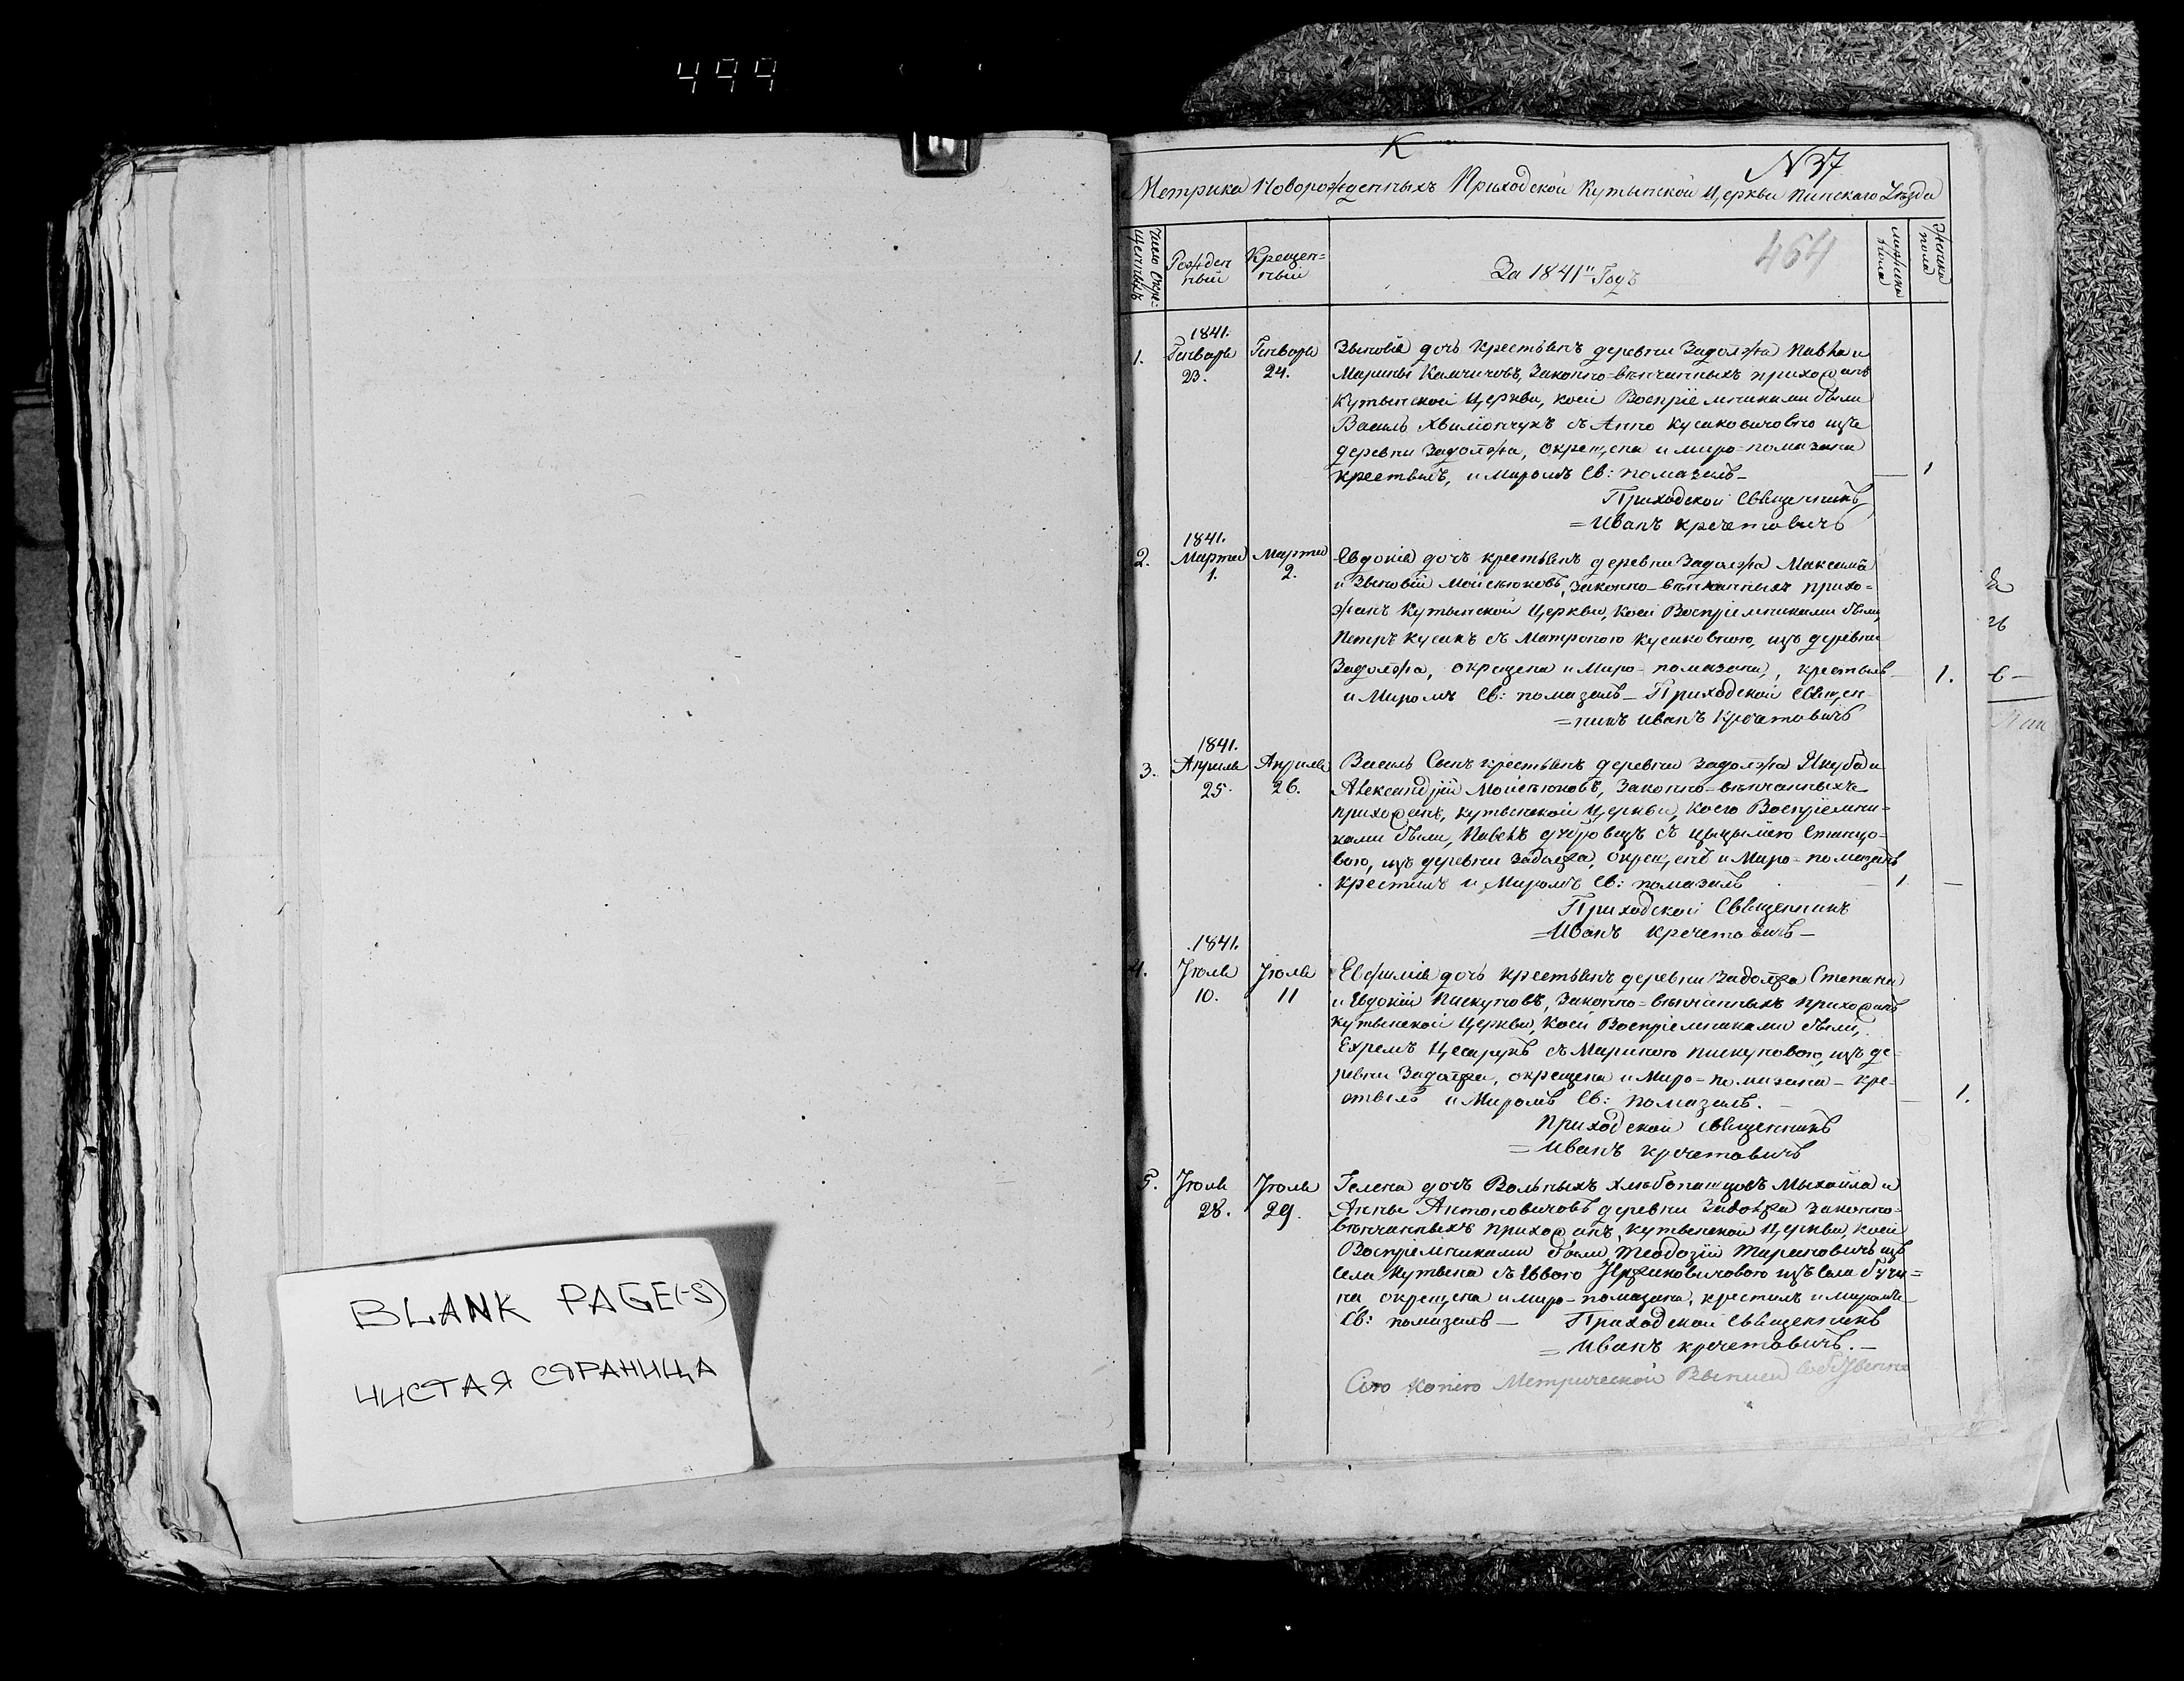 499
К
N 37
Метрика Новорожденныхъ Приходской Кутынской Церкви Пинскаго Уѣзда
Число Окре=
щенныхъ
Рожден
ный
Крещен=
ный
За 1841 Годъ
454
мужска
пола
Женска
пола
1841.
1. Генваря Генваря Зѣновія дочь крестьянъ деревни Задолжа Павла и
23. 24. Марины Камчичовъ, Законно=вѣнчанныхъ прихожанъ
Кутынской Церкви, коей Воспріемниками были
Василь Хвилончукъ съ Анно Кусиковичовно изъ
деревни Задолжа, окрещена и миро=помазана
крестылъ, и Миромъ Св: помазалъ 1
Приходской Священникъ
=Иванъ Кречетовичъ
1841.
2. Марта Марта Евдокія дочъ крестьянъ деревни Задолжа Максима
1. 2. и Зѣновіи Мойсѣюковъ, Законно-вѣнчанныхъ прихо=
жанъ Кутынской Церкви, коей Воспріемниками были,
Петръ Кусикъ съ Матроною Кусиковною, изъ деревни
Задолжа, окрещена и Миро-помазана, крестылъ 1.
и Миромъ Св: помазалъ Приходской Священ-
=никъ Иванъ Кречетовичъ
1841.
3. Апрыля Апрыля Василь Сынъ крестьянъ деревни Задолжа Якуба и
25. 26. Александріи Мойсѣюковъ, Законно-вѣнчанныхъ
прихожанъ, Кутынской Церкви, коего Воспріемни=
ками были, Павелъ с
вою, изъ деревни Задолжа, окрещенъ и Миро=помазанъ
крестилъ и Миромъ Св: помазалъ 1
Приходской Священникъ
=Иванъ Кречетовичъ
1841.
4. Іюля Іюля Евфимія дочь крестьянъ деревни Задолжа Степана
10. 11 и Евдокіи Пискуновъ, Законно=вѣнчанныхъ прихожанъ
Кутынской Церкви, коей Воспріемниками были,
Ехремъ Цесарукъ съ Мариною Пискуновою, изъ де-
ревни Задолжа, окрещена и Миро=помазана - кре-
стылъ и Миромъ Св: помазалъ. 1.
Приходской Священникъ
=Иванъ Кречетовичъ
5. Іюля Іюля Гелена дочь Вольныхъ Хлѣбопашцовъ Мыхайла и
28. 29. Анны Антоновичовъ деревни Задолжа Законно-
вѣнчанныхъ прихожанъ, Кутынской Церкви, коей
Воспріемниками были, Теодозій Тарановичъ изъ
села Кутына съ изъ села
на окрещена и миро-помазана, крестилъ и миромъ
Св: помазалъ Приходской Священникъ
=Иванъ Кречетовичъ.
Сію копію Метрической Выписи
BLANK PAGE(-S)
ЧИСТАЯ СТРАНИЦА